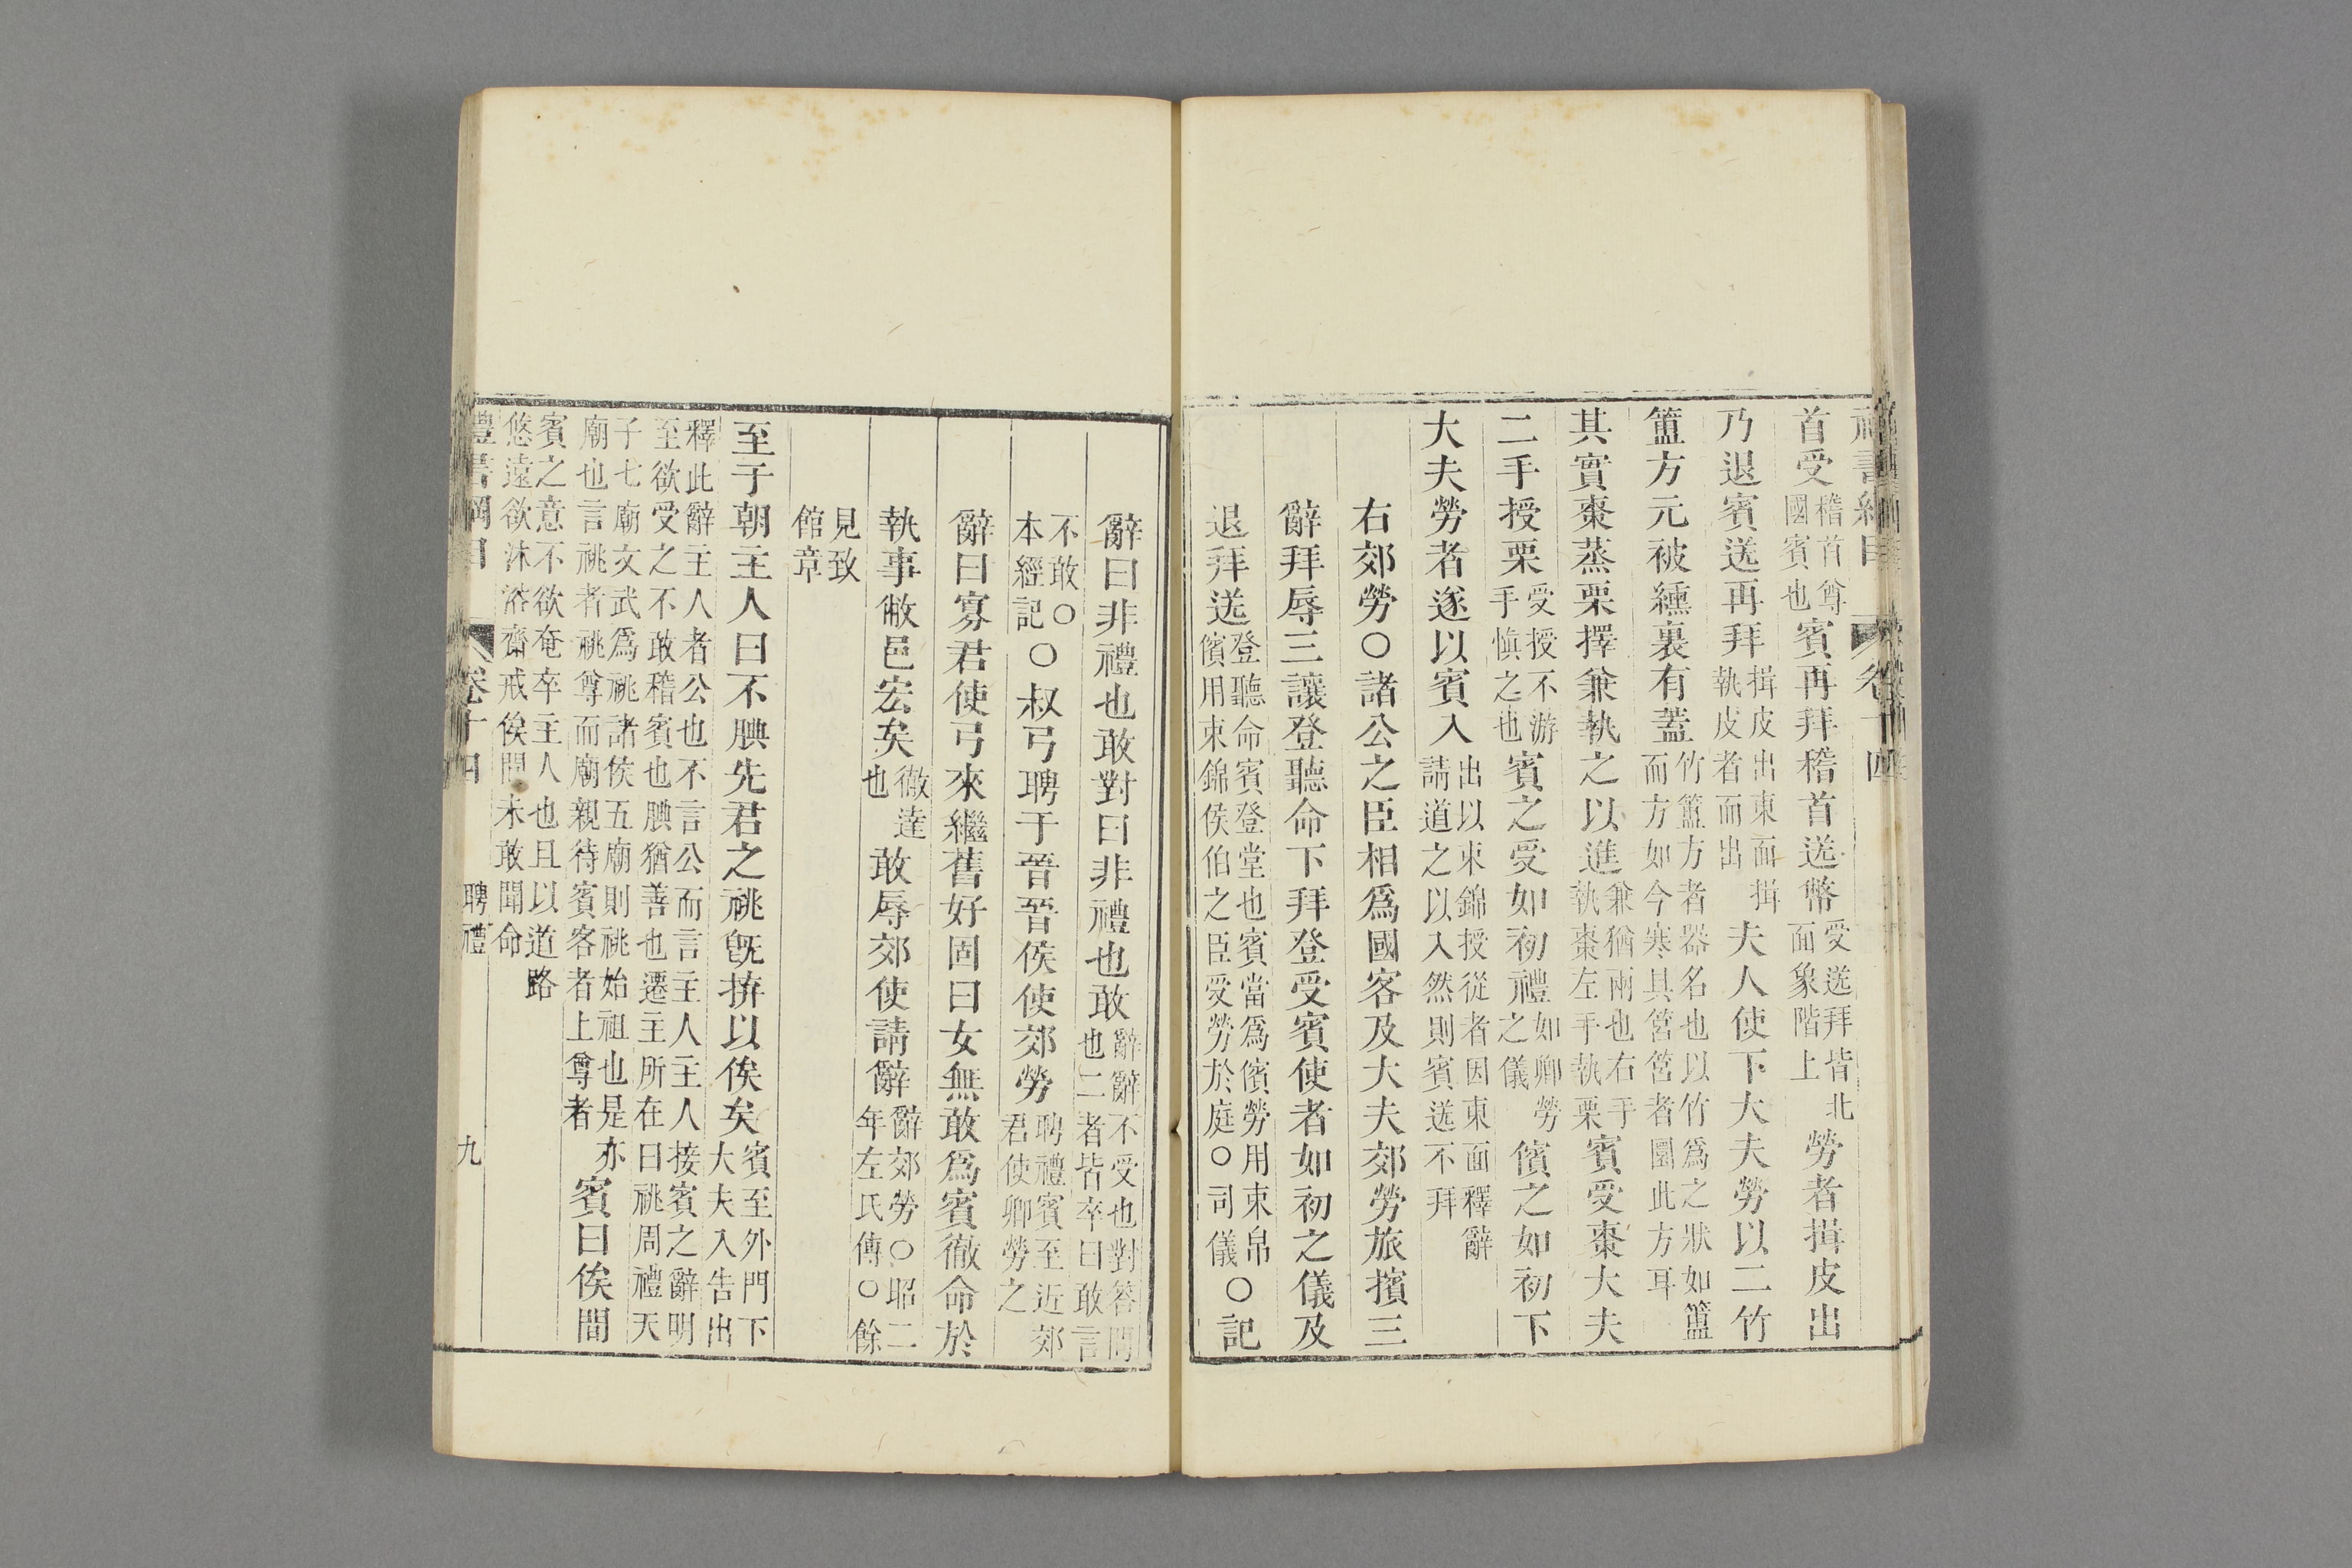 禮書綱目　卷十四
首受稽首尊國賓也賓再拜稽首送幣受送拜皆北面象階上勞者揖皮出
乃退賓送再拜揖皮出東面揖執皮者而出夫人使下大夫勞以二竹
簠方元被纁裏有蓋竹簠方者器名也以竹爲之狀如簠而方如今寒具筥筥者圜此方耳
其實棗蒸栗擇兼執之以進兼猶兩也右手執棗左手執栗賓受棗大夫
二手授栗受授不游手慎之也賓之受如初禮如卿勞之儀儐之如初下
大夫勞者遂以賓入出以束錦授從者因東面釋辭請道之以入然則賓送不拜
右郊勞〇諸公之臣相爲國客及大夫郊勞旅擯三
辭拜辱三讓登聽命下拜登受賓使者如初之儀及
退拜送登聽命賓登堂也賓當爲儐勞用束帛儐用束錦侯伯之臣受勞於庭〇司儀〇記
辭曰非禮也敢對曰非禮也敢辭辭不受也對答問也二者皆卒曰敢言
不敢〇本經記〇叔弓聘于晉晉侯使郊勞聘禮賓至近郊君使卿勞之
辭曰寡君使弓來繼舊好固曰女無敢爲賓徹命於
執事敝邑宏矣徹達也敢辱郊使請辭辭郊勞〇昭二年左氏傳〇餘
見致館章
至于朝主人曰不腆先君之祧旣拚以俟矣賓至外門下大夫入告出
釋此辭主人者公也不言公而言主人主人接賓之辭明至欲受之不敢稽賓也腆猶善也遷主所在曰祧周禮天
子七廟文武爲祧諸侯五廟則祧始祖也是亦廟也言祧者祧尊而廟親待賓客者上尊者賓曰俟間
賓之意不欲奄卒主人也且以道路悠遠欲沐浴齋戒俟閒未敢聞命
禮書綱目　卷十四　聘禮　九